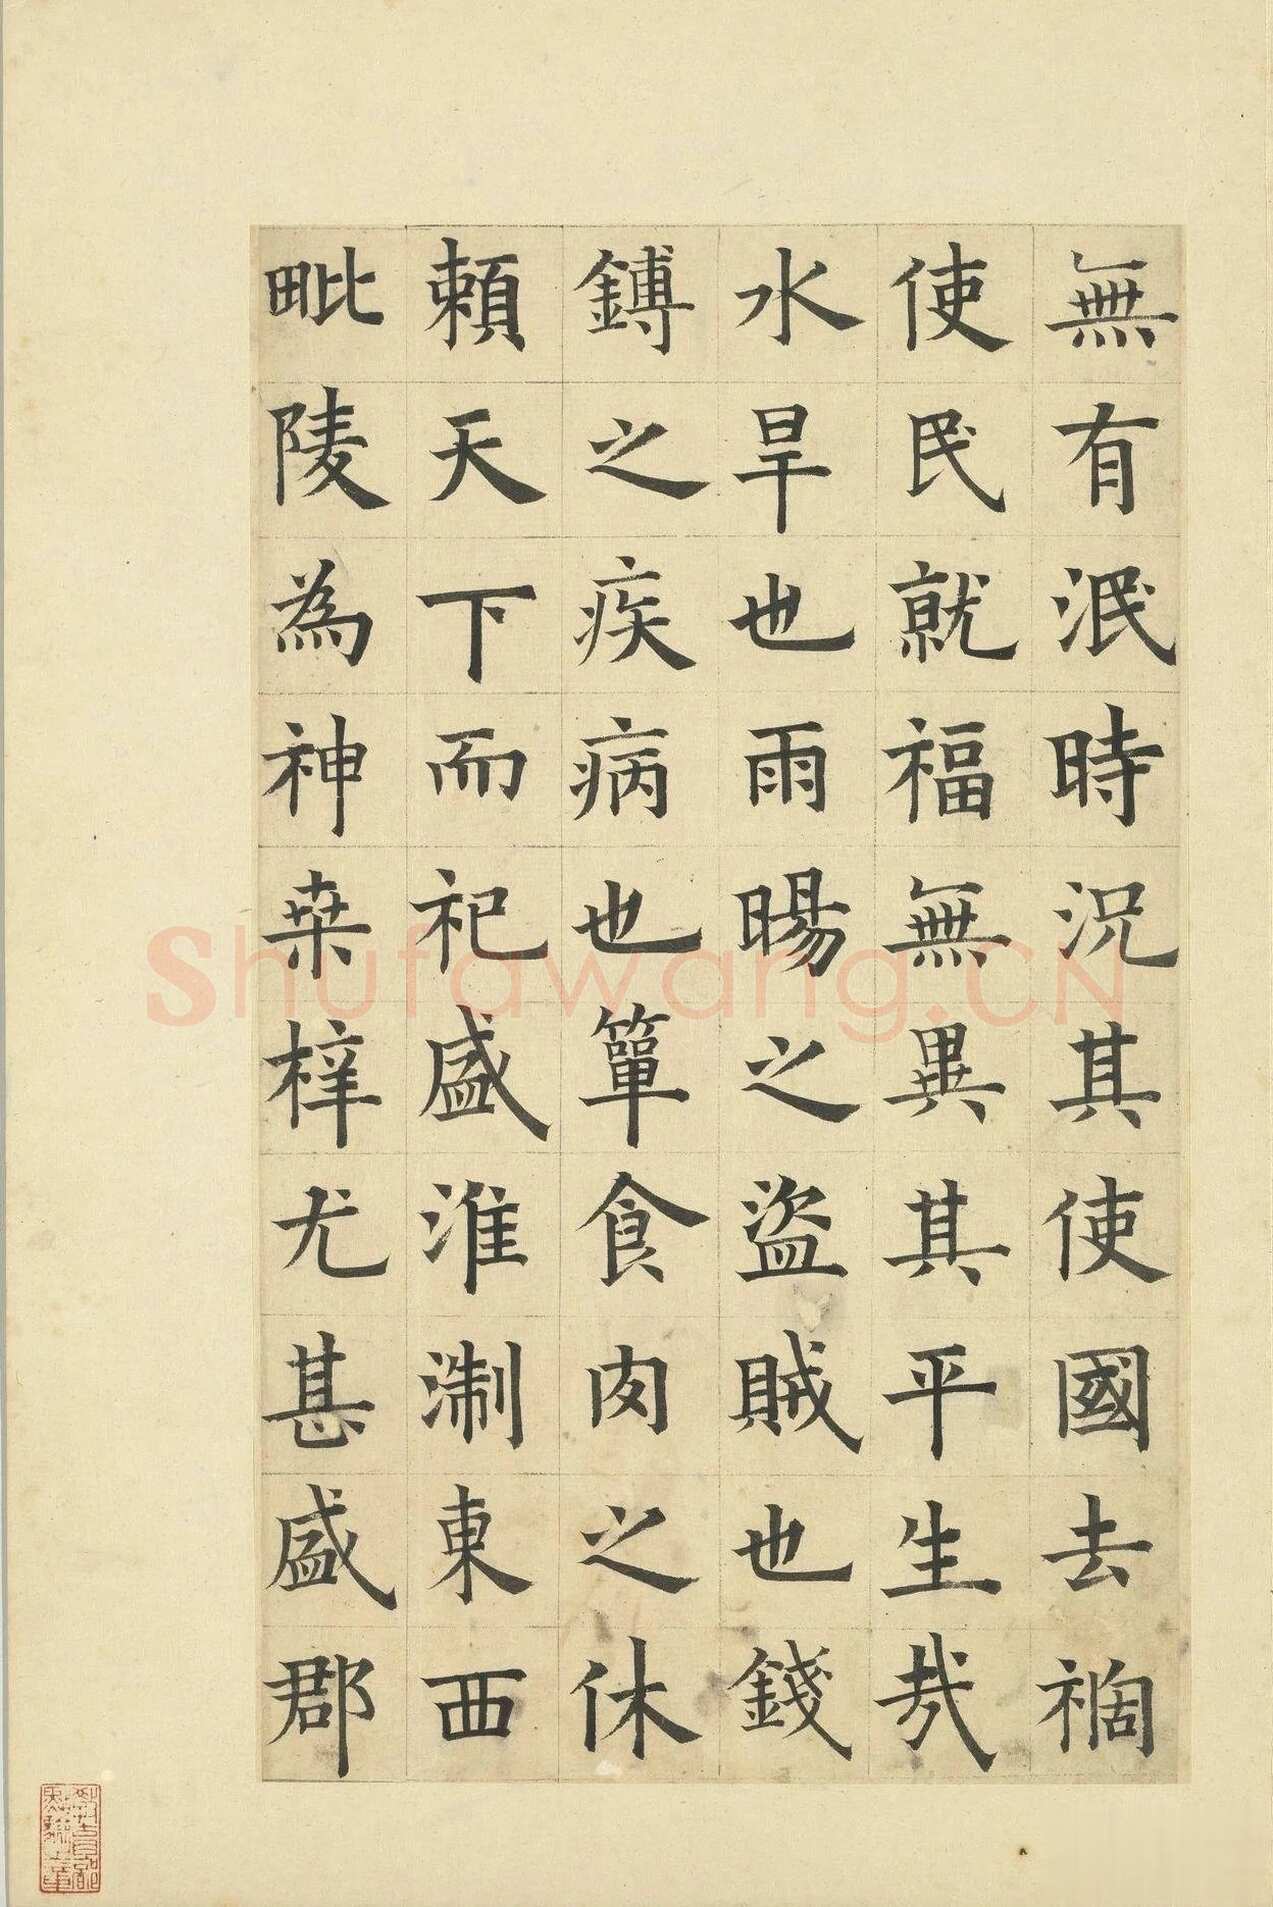 無有泯時況其使國去禍
使民就福無異其平生㢤
水旱也雨暘之盜賊也錢
鎛之疾病也簞食肉之休
頼天下而祀盛淮淛東西
毗陵為神桒梓尤甚盛郡
Shufawang.CN